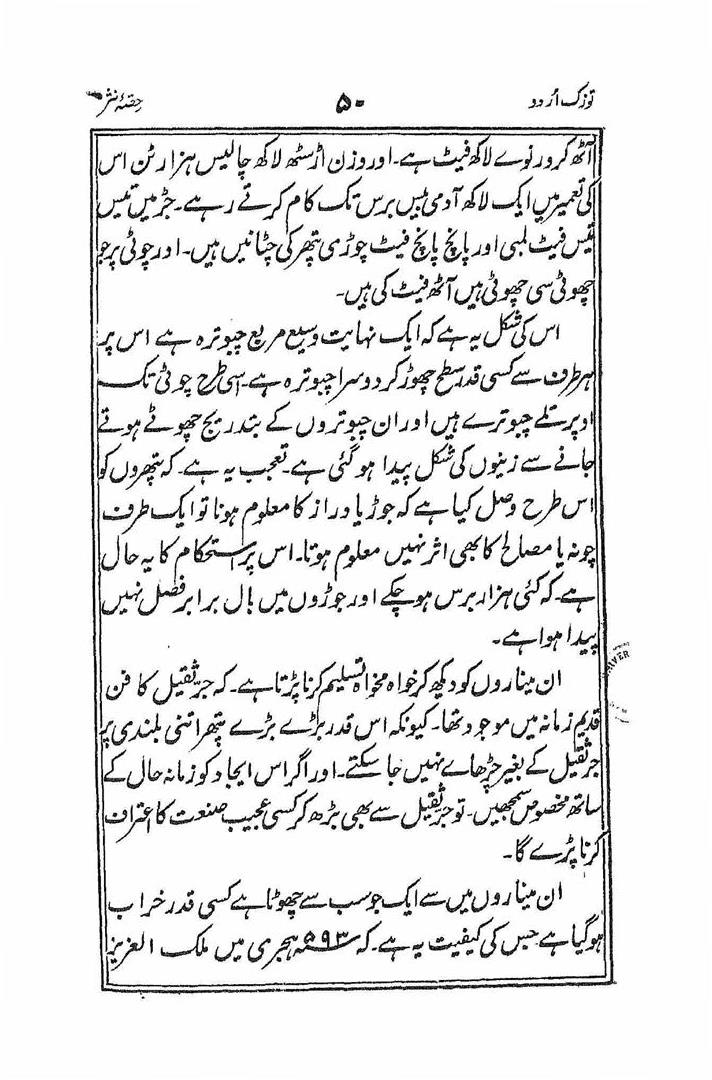 توزک اُردو
۵۰
حصّۂ نثر
آٹھ کرور نوے لاکھ فیٹ ہے۔ اور وزن اڑسٹھ لاکھ چالیس ہزار ٹن اس
کی تعمیر میں ایک لاکھ آدمی بیس برس تک کام کرتے رہے۔ جڑ میں تیس
تیس فیٹ لمبی اور پانچ پانچ فیٹ چوڑی پتھر کی چٹانیں ہیں۔ اور چوٹی پر جو
چھوٹی سی چھوٹی ہیں آٹھ فیٹ کی ہیں۔
اس کی شکل یہ ہے کہ ایک نہایت وسیع مربع چبوترہ ہے اس پر
ہر طرف سے کسی قدر سطح چھوڑ کر دوسرا چبوترہ ہے۔ اسی طرح چوٹی تک
اوپر تلے چبوترے ہیں اور ان چبوتروں کے بتدریج چھوٹے ہوتے
جانے سے زینوں کی شکل پیدا ہو گئی ہے۔ تعجب یہ ہے۔ کہ پتھروں کو
اس طرح وصل کیا ہے کہ جوڑ یا دراز کا معلوم ہونا تو ایک طرف
چونہ یا مصالح کا بھی اثر نہیں معلوم ہوتا۔ اس پر استحکام کا یہ حال
ہے۔ کہ کئی ہزار برس ہو چکے اور جوڑوں میں بال برابر فصل نہیں
پیدا ہوا ہے۔
ان میناروں کو دیکھ کر خواہ مخواہ تسلیم کرنا پڑتا ہے۔ کہ جرثقیل کا فن
قدیم زمانہ میں موجود تھا۔ کیونکہ اس قدر بڑے بڑے پتھر اتنی بلندی پر
جرثقیل کے بغیر چڑھاے نہیں جا سکتے۔ اور اگر اس ایجاد کو زمانہ حال کے
ساتھ مخصوص سمجھیں۔ تو جرثقیل سے بھی بڑھ کر کسی عجیب صنعت کا اعتراف
کرنا پڑے گا۔
ان میناروں میں سے ایک جو سب سے چھوٹا ہے کسی قدر خراب
ہو گیا ہے جس کی کیفیت یہ ہے۔ کہ ۵۹۳؁ ہجری میں ملک العزیز